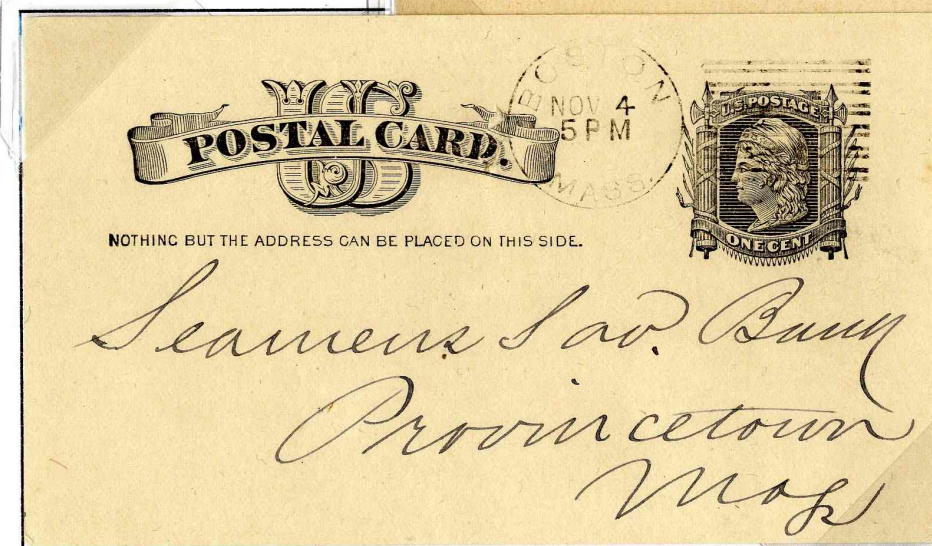 US
POSTAL CARD.
BOSTON
NOV 4
5 PM
MASS.
U.S. POSTAGE
ONE CENT
NOTHING BUT THE ADDRESS CAN BE PLACED ON THIS SIDE.
Seamens Sav. Bank
Provincetown
Mass